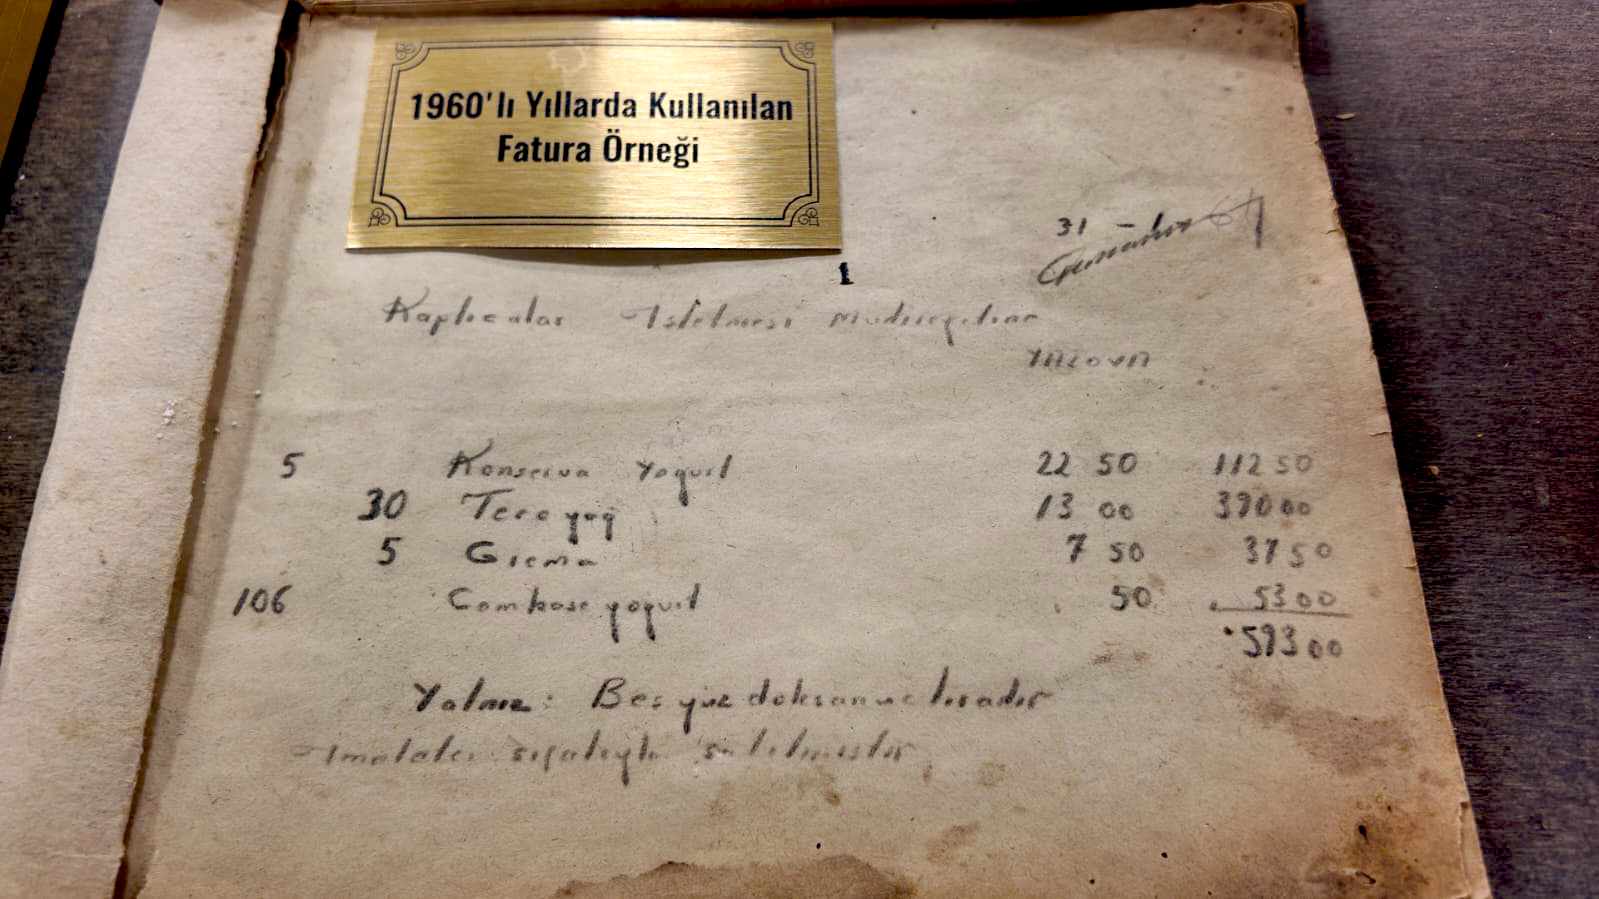 1960'lı Yıllarda Kullanılan
Fatura Örneği
31 -
1
Kaplıcalar İşletmesi Müdüriyetine
YALOVA
5 Konserva Yogurt 22 50 112 50
30 Tereyağ 13 00 390 00
5 Grema 7 50 37 50
106 Combose yogurt 50 53 00
593 00
Yalnız: Beş yüz doksan üç liradır
İmalatcı sıfatıyla satılmıştır